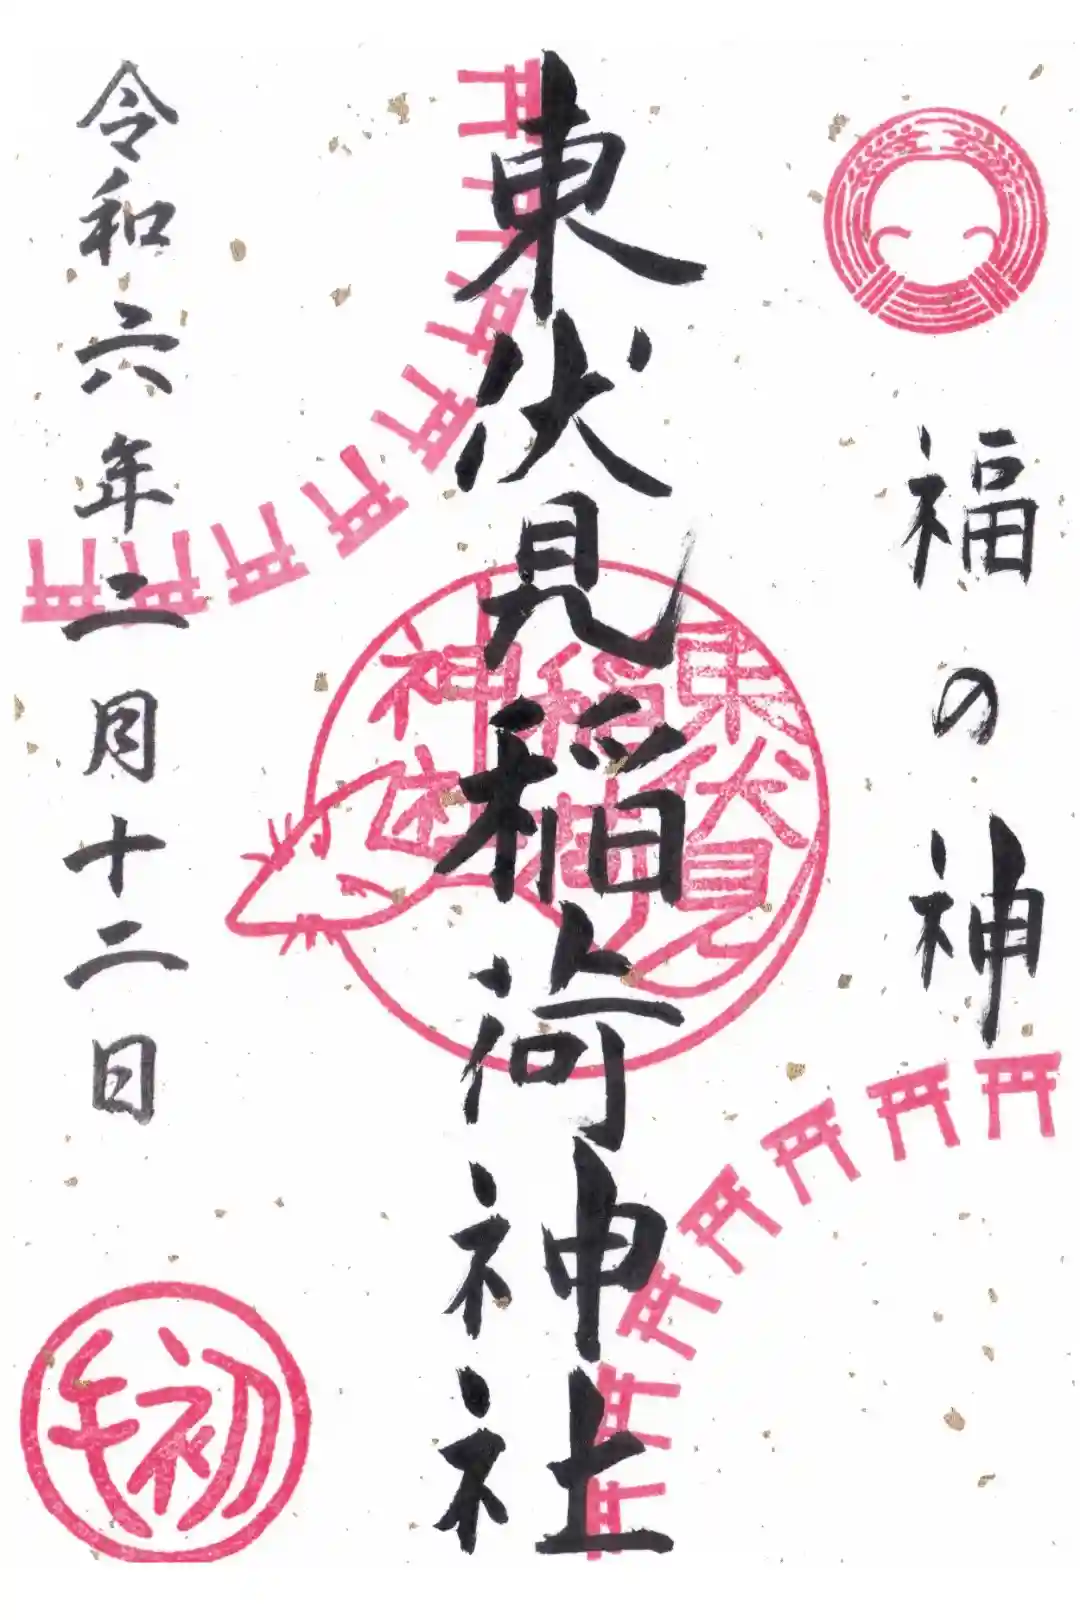 福の神
東伏見稲荷神社
東伏見
稲荷
神社
令和六年二月十二日
初午